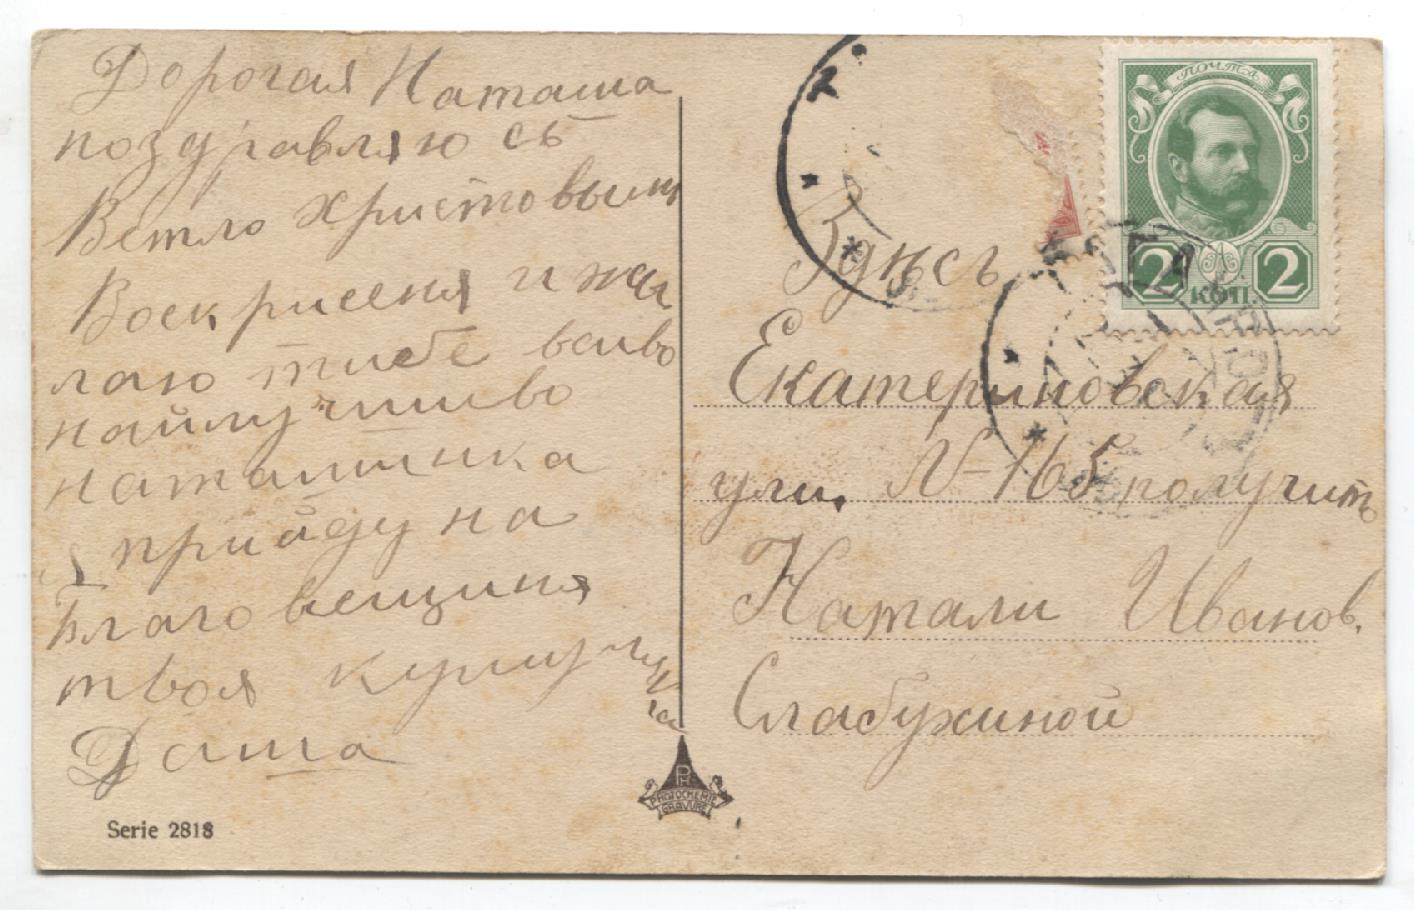 Дорогая Наташа
поздравляю съ
Вѣтло Христовым
Воскрисеня и жи
лаю тибе всиво
найлучшиво
наташинка
я прийду на
Благовещиня
твоя
Даша
Serie 2818
PH
PHOTOCHEMIE
GRAVURE
ПОЧТА
2 КОП. 2
Здѣсь
Екатериновская
ули. N-165 получить
Натали Иванов.
Слабужиной